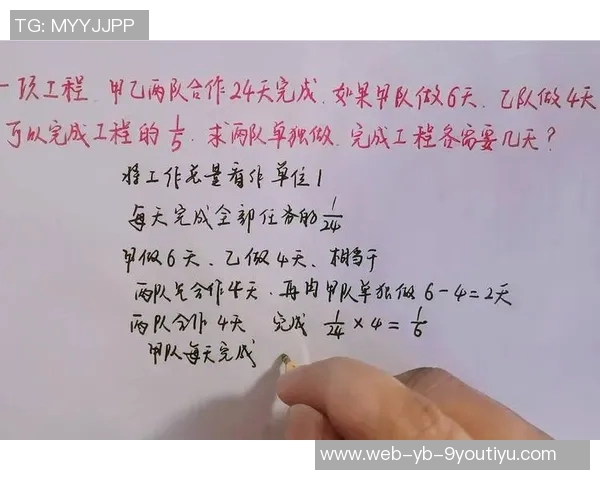 TG: MYYJJPP
一项工程，甲乙两队合作24天完成，如果甲队做6天、乙队做4天
可以完成工程的1/5，求两队单独做，完成工程各需要几天？
将工作总量看作单位1
每天完成全部任务的1/24
甲做6天、乙做4天、相当于
两队先合作4天，再由甲队单独做6-4=2天
两队合作4天 完成 1/24×4=1/6
甲队每天完成
www-web-yb-9youtiyu.com